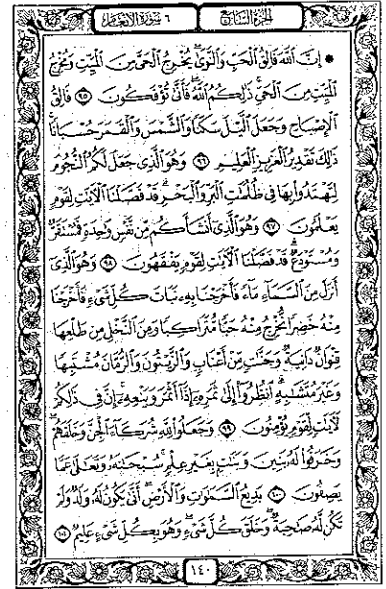 الجزء السابع ٦ سورة الأنعام
۞ إِنَّ ٱللَّهَ فَالِقُ ٱلْحَبِّ وَٱلنَّوَىٰ يُخْرِجُ ٱلْحَىَّ مِنَ ٱلْمَيِّتِ وَمُخْرِجُ
ٱلْمَيِّتِ مِنَ ٱلْحَىِّ ذَٰلِكُمُ ٱللَّهُ فَأَنَّىٰ تُؤْفَكُونَ ٩٥ فَالِقُ
ٱلْإِصْبَاحِ وَجَعَلَ ٱلَّيْلَ سَكَنًا وَٱلشَّمْسَ وَٱلْقَمَرَ حُسْبَانًا
ذَٰلِكَ تَقْدِيرُ ٱلْعَزِيزِ ٱلْعَلِيمِ ٩٦ وَهُوَ ٱلَّذِى جَعَلَ لَكُمُ ٱلنُّجُومَ
لِتَهْتَدُوا۟ بِهَا فِى ظُلُمَٰتِ ٱلْبَرِّ وَٱلْبَحْرِ قَدْ فَصَّلْنَا ٱلْءَايَٰتِ لِقَوْمٍ
يَعْلَمُونَ ٩٧ وَهُوَ ٱلَّذِىٓ أَنشَأَكُم مِّن نَّفْسٍ وَٰحِدَةٍ فَمُسْتَقَرٌّ
وَمُسْتَوْدَعٌ قَدْ فَصَّلْنَا ٱلْءَايَٰتِ لِقَوْمٍ يَفْقَهُونَ ٩٨ وَهُوَ ٱلَّذِىٓ
أَنزَلَ مِنَ ٱلسَّمَآءِ مَآءً فَأَخْرَجْنَا بِهِۦ نَبَاتَ كُلِّ شَىْءٍ فَأَخْرَجْنَا
مِنْهُ خَضِرًا نُّخْرِجُ مِنْهُ حَبًّا مُّتَرَاكِبًا وَمِنَ ٱلنَّخْلِ مِن طَلْعِهَا
قِنْوَانٌ دَانِيَةٌ وَجَنَّٰتٍ مِّنْ أَعْنَابٍ وَٱلزَّيْتُونَ وَٱلرُّمَّانَ مُشْتَبِهًا
وَغَيْرَ مُتَشَٰبِهٍ ٱنظُرُوٓا۟ إِلَىٰ ثَمَرِهِۦٓ إِذَآ أَثْمَرَ وَيَنْعِهِۦٓ إِنَّ فِى ذَٰلِكُمْ
لَءَايَٰتٍ لِّقَوْمٍ يُؤْمِنُونَ ٩٩ وَجَعَلُوا۟ لِلَّهِ شُرَكَآءَ ٱلْجِنَّ وَخَلَقَهُمْ
وَخَرَقُوا۟ لَهُۥ بَنِينَ وَبَنَٰتٍۭ بِغَيْرِ عِلْمٍ سُبْحَٰنَهُۥ وَتَعَٰلَىٰ عَمَّا
يَصِفُونَ ١٠٠ بَدِيعُ ٱلسَّمَٰوَٰتِ وَٱلْأَرْضِ أَنَّىٰ يَكُونُ لَهُۥ وَلَدٌ وَلَمْ
تَكُن لَّهُۥ صَٰحِبَةٌ وَخَلَقَ كُلَّ شَىْءٍ وَهُوَ بِكُلِّ شَىْءٍ عَلِيمٌ ١٠١
١٤٠